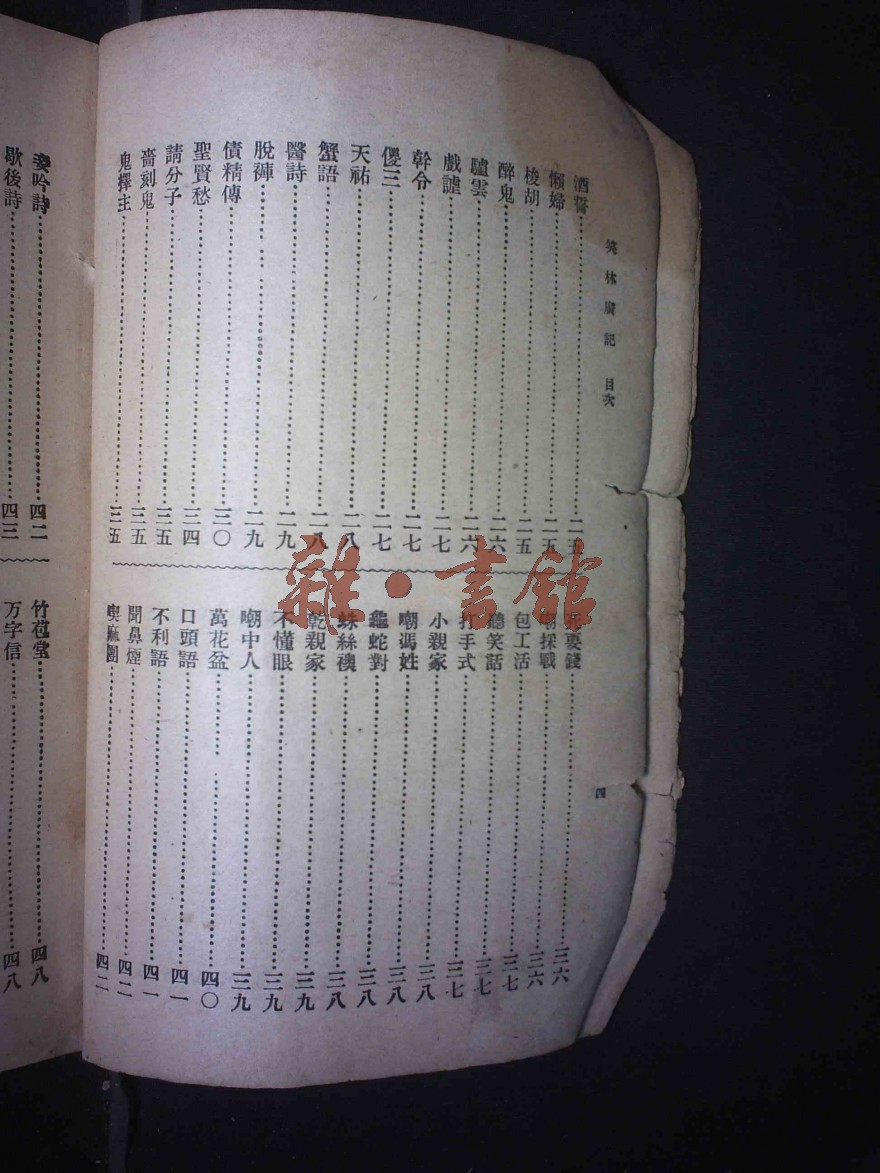 笑林廣記 目次
四
酒誓……二五
懶婦……二五
梭胡……二五
醉鬼……二六
驢雲……二六
戲謔……二七
幹令……二七
儍三……二七
天祐……二八
蟹語……二八
醫詩……二九
脫褲……二九
債精傳……三〇
聖賢愁……三四
請分子……三五
嗇刻鬼……三五
鬼擇主……三五
死要錢……三六
嘲採戰……三六
包工活……三七
聽笑話……三七
打手式……三七
小親家……三八
嘲馮姓……三八
龜蛇對……三八
蛛絲襖……三八
乾親家……三九
不懂眼……三九
嘲中人……三九
萬花盆……四〇
口頭語……四一
不利語……四一
聞鼻煙……四二
喫麻團……四二
雜·書館
吟詩……四二
歇後詩……四三
竹苞堂……四八
万字信……四八